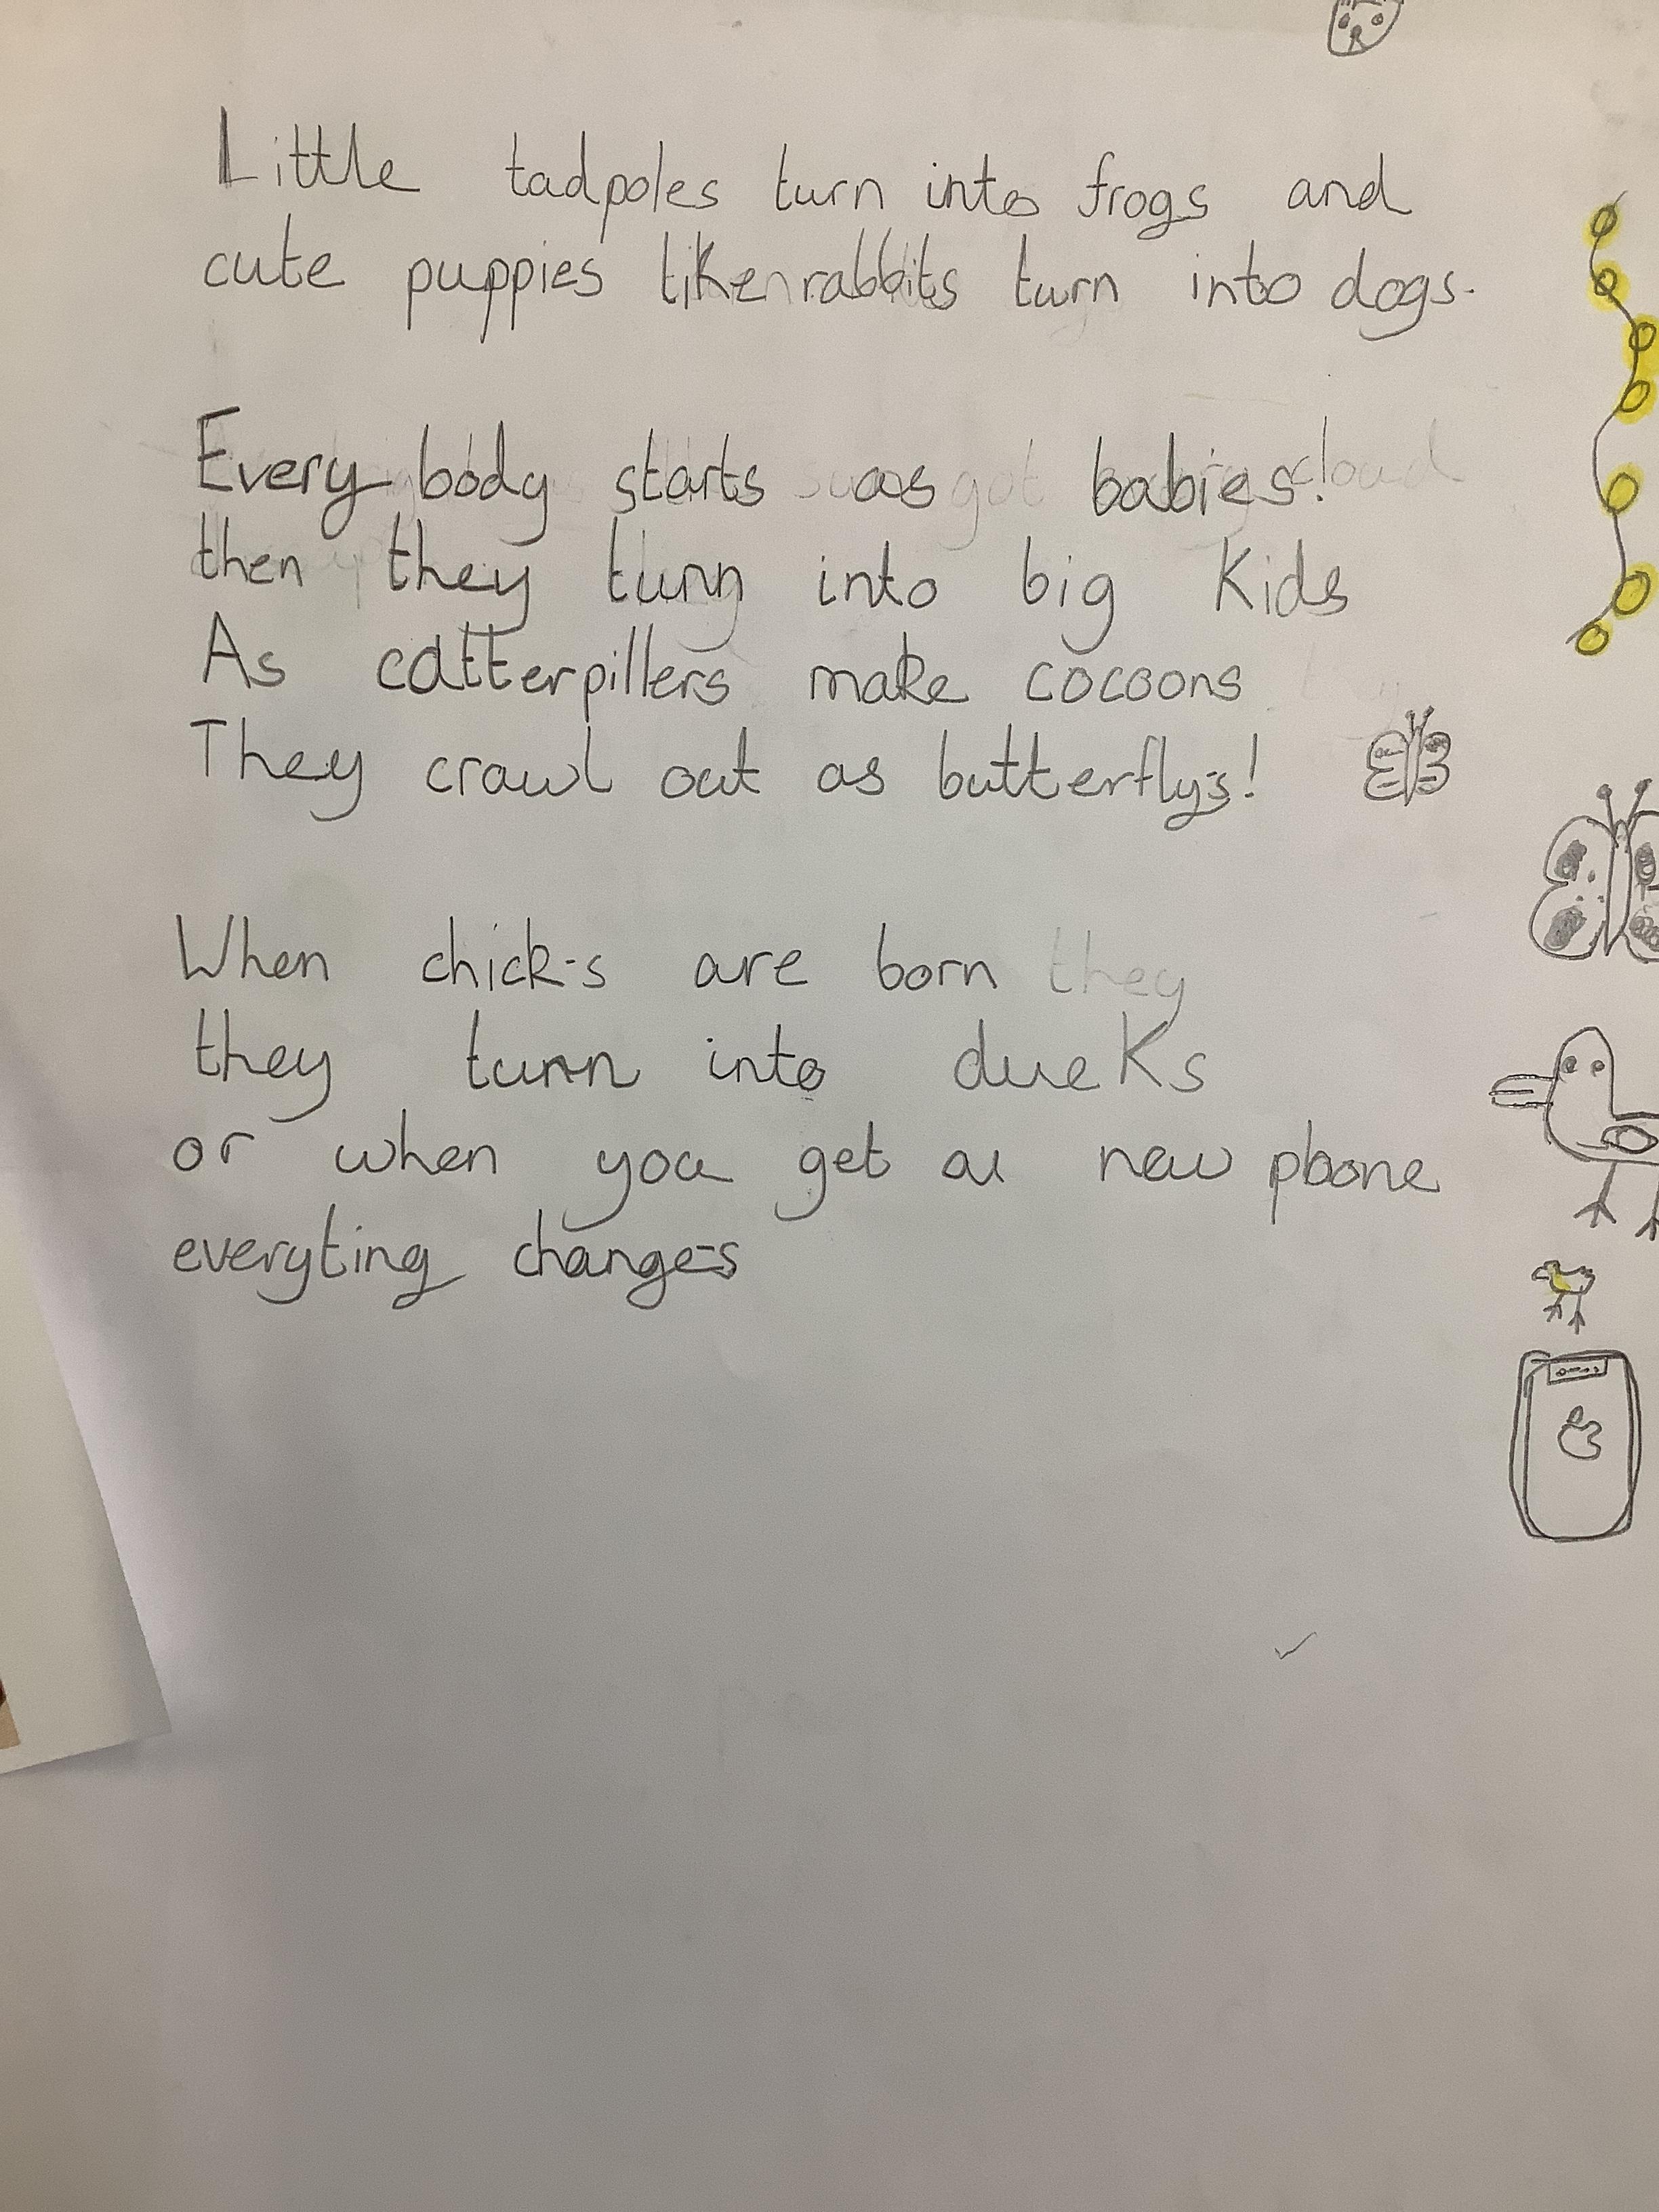 Little tadpoles turn into frogs and
cute puppies like rabbits turn into dogs.
Every body starts as babies!
then they turn into big Kids
As catterpillers make cocoons
They crawl out as butterflys!
When chick-s are born they
they turn into ducks
or when you get a new phone
everyting change-s